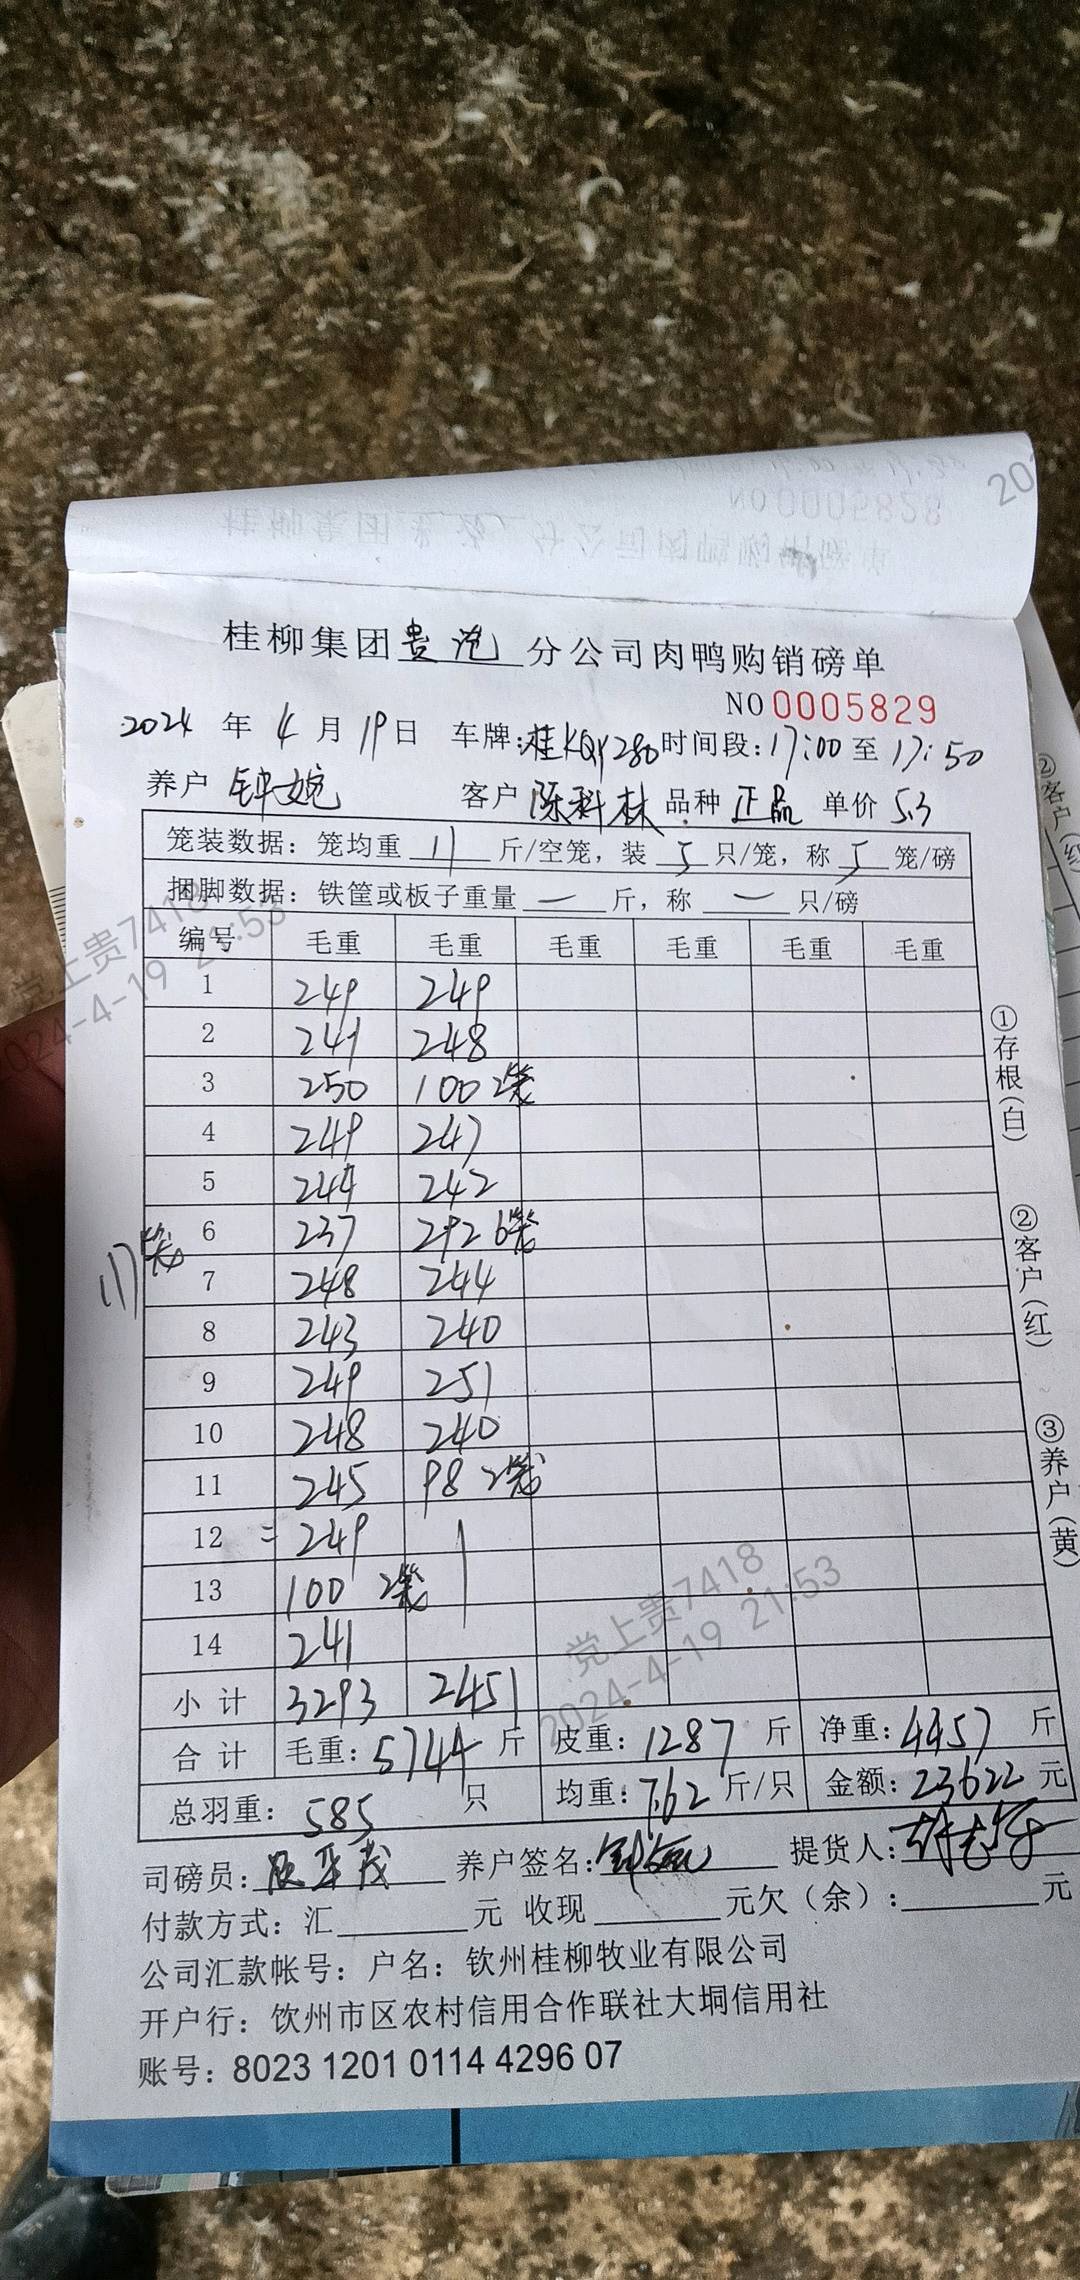 NO 0005828
桂柳集团贵港分公司肉鸭购销磅单
NO 0005829
2024 年 4 月 19 日 车牌:桂KQY280 时间段:17:00 至 17:50
养户 钟婉 客户 陈科林 品种 正品 单价 5.3
笼装数据：笼均重 11 斤/空笼，装 5 只/笼，称 5 笼/磅
捆脚数据：铁筐或板子重量 一 斤，称 一 只/磅
编号 毛重 毛重 毛重 毛重 毛重 毛重
1 249 249
2 241 248
3 250 100 2笼
4 249 247
5 244 242
6 237 292 6笼
7 248 244
8 243 240
9 249 251
10 248 240
11 245 98 2笼
12 = 249
13 100 2笼
14 241
117笼
小计 3293 2451
合计 毛重：5744 斤 皮重：1287 斤 净重：4457 斤
总羽重：585 只 均重：7.62 斤/只 金额：23622 元
司磅员： 养户签名： 提货人：
付款方式：汇 元 收现 元欠（余）： 元
公司汇款帐号：户名：钦州桂柳牧业有限公司
开户行：钦州市区农村信用合作联社大垌信用社
账号：8023 1201 0114 4296 07
①存根(白)
②客户(红)
③养户(黄)
②客户(红
党上贵7418
2024-4-19 21:53
党上贵7418
2024-4-19 21:53
202